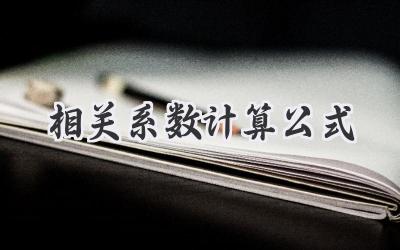 相关系数计算公式